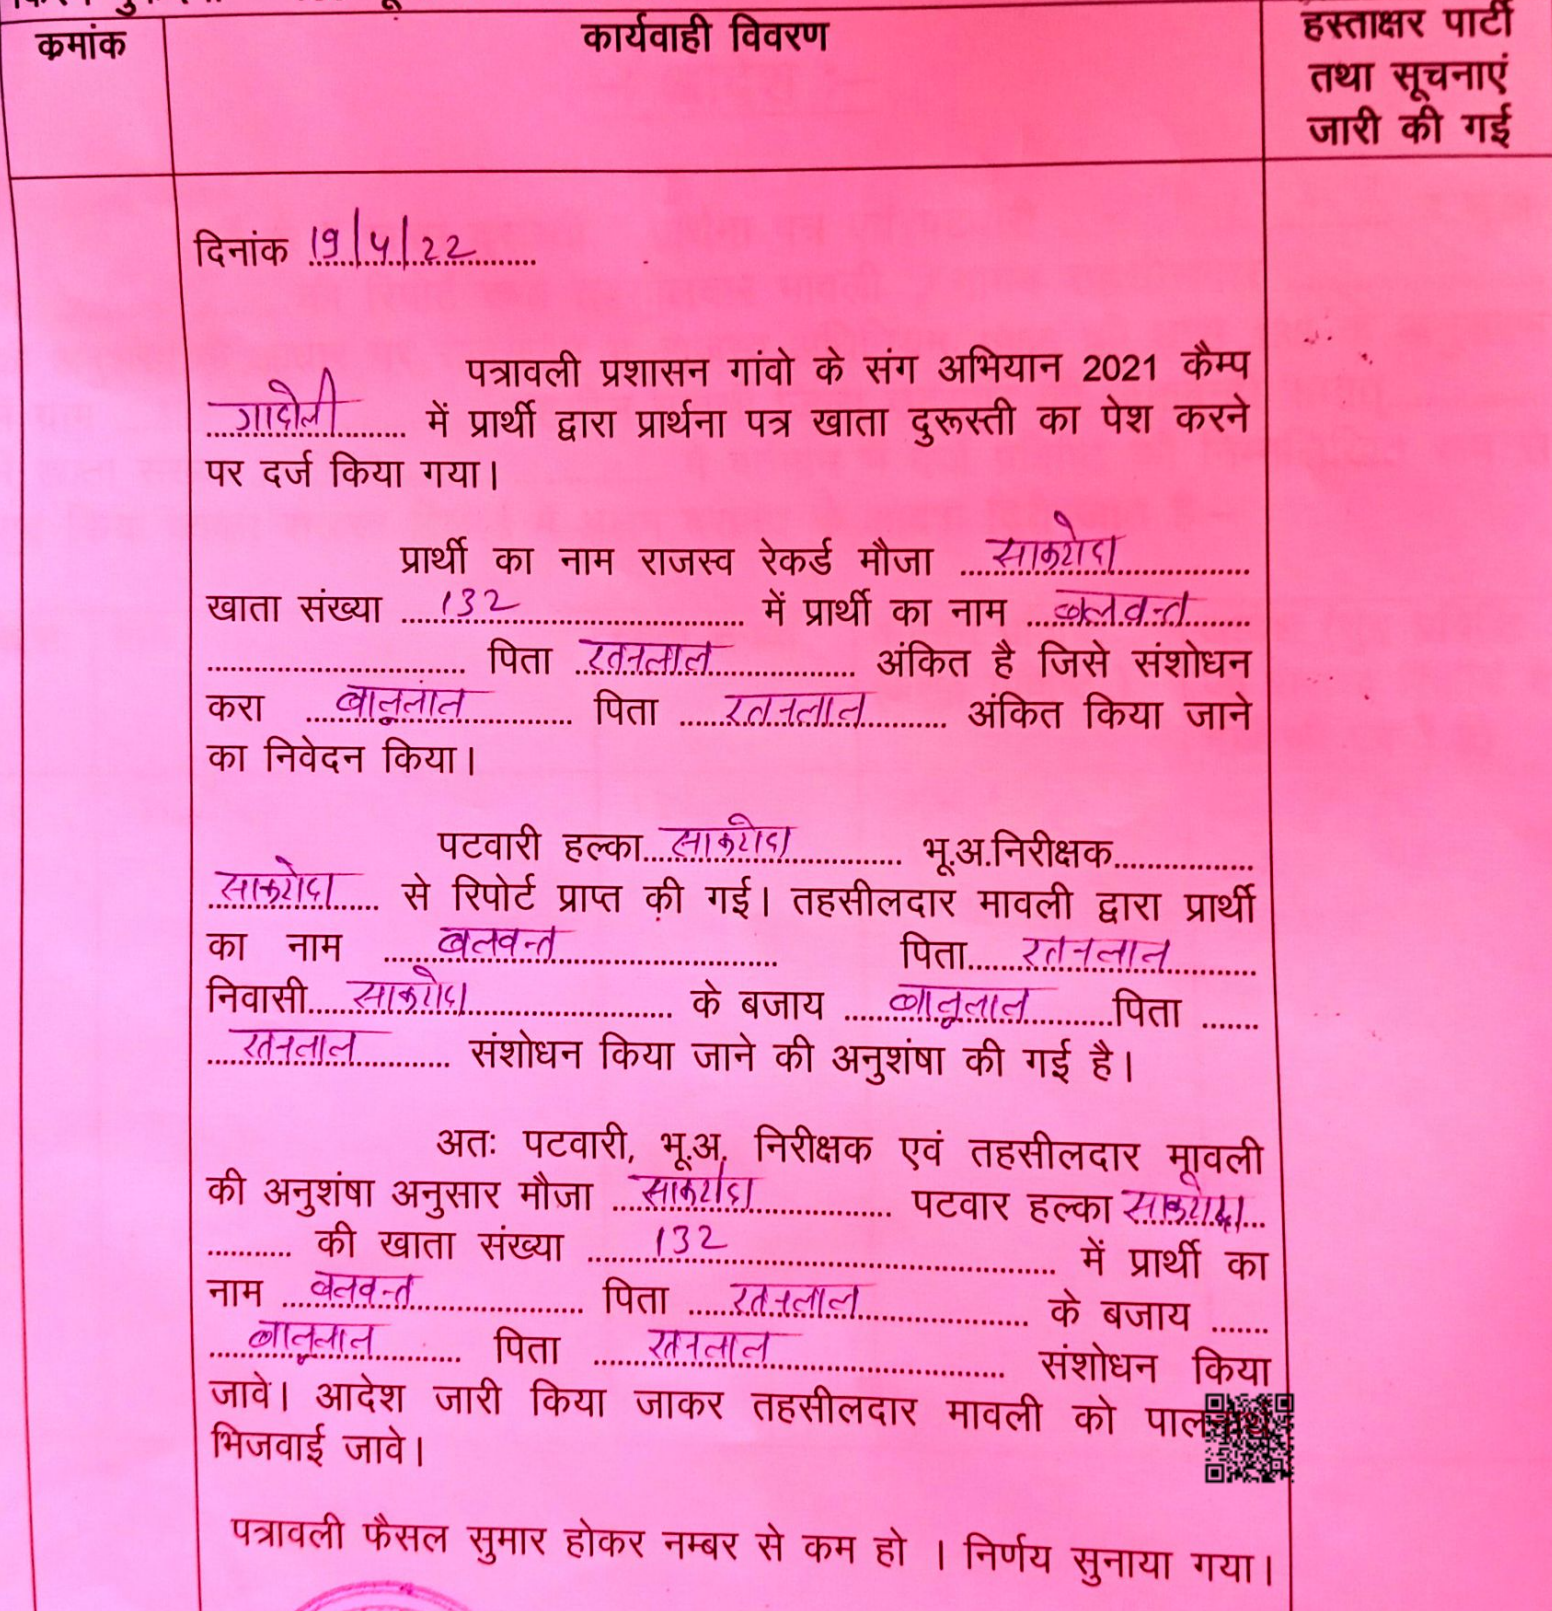 क्रमांक
कार्यवाही विवरण
हस्ताक्षर पार्टी
तथा सूचनाएं
जारी की गई
दिनांक 19/4/22
पत्रावली प्रशासन गांवो के संग अभियान 2021 कैम्प
गादोली में प्रार्थी द्वारा प्रार्थना पत्र खाता दुरूस्ती का पेश करने
पर दर्ज किया गया।
प्रार्थी का नाम राजस्व रेकर्ड मौजा साकरोदा
खाता संख्या 132 में प्रार्थी का नाम बलवन्त
पिता रतनलाल अंकित है जिसे संशोधन
करा बालूलाल पिता रतनलाल अंकित किया जाने
का निवेदन किया।
पटवारी हल्का साकरोदा भू.अ.निरीक्षक
साकरोदा से रिपोर्ट प्राप्त की गई। तहसीलदार मावली द्वारा प्रार्थी
का नाम बलवन्त पिता रतनलाल
निवासी साकरोदा के बजाय बालूलाल पिता
रतनलाल संशोधन किया जाने की अनुशंषा की गई है।
अतः पटवारी, भू.अ. निरीक्षक एवं तहसीलदार मावली
की अनुशंषा अनुसार मौजा साकरोदा पटवार हल्का साकरोदा
की खाता संख्या 132 में प्रार्थी का
नाम बलवन्त पिता रतनलाल के बजाय
बालूलाल पिता रतनलाल संशोधन किया
जावे। आदेश जारी किया जाकर तहसीलदार मावली को
भिजवाई जावे।
पत्रावली फैसल सुमार होकर नम्बर से कम हो । निर्णय सुनाया गया।